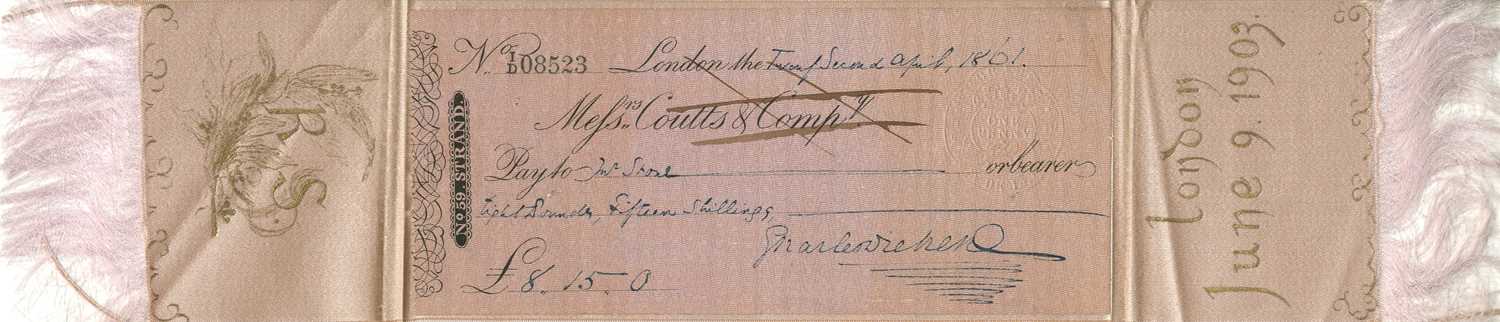 R S
No. 59. STRAND.
No I/D 08523 London the Twenty Second April, 1861.
Messrs. Coutts & Compy.
ONE PENNY
Pay to Mr Stone or bearer
Eight Pounds, Fifteen Shillings,
Charles Dickens
£8.15.0
London
June 9. 1903.